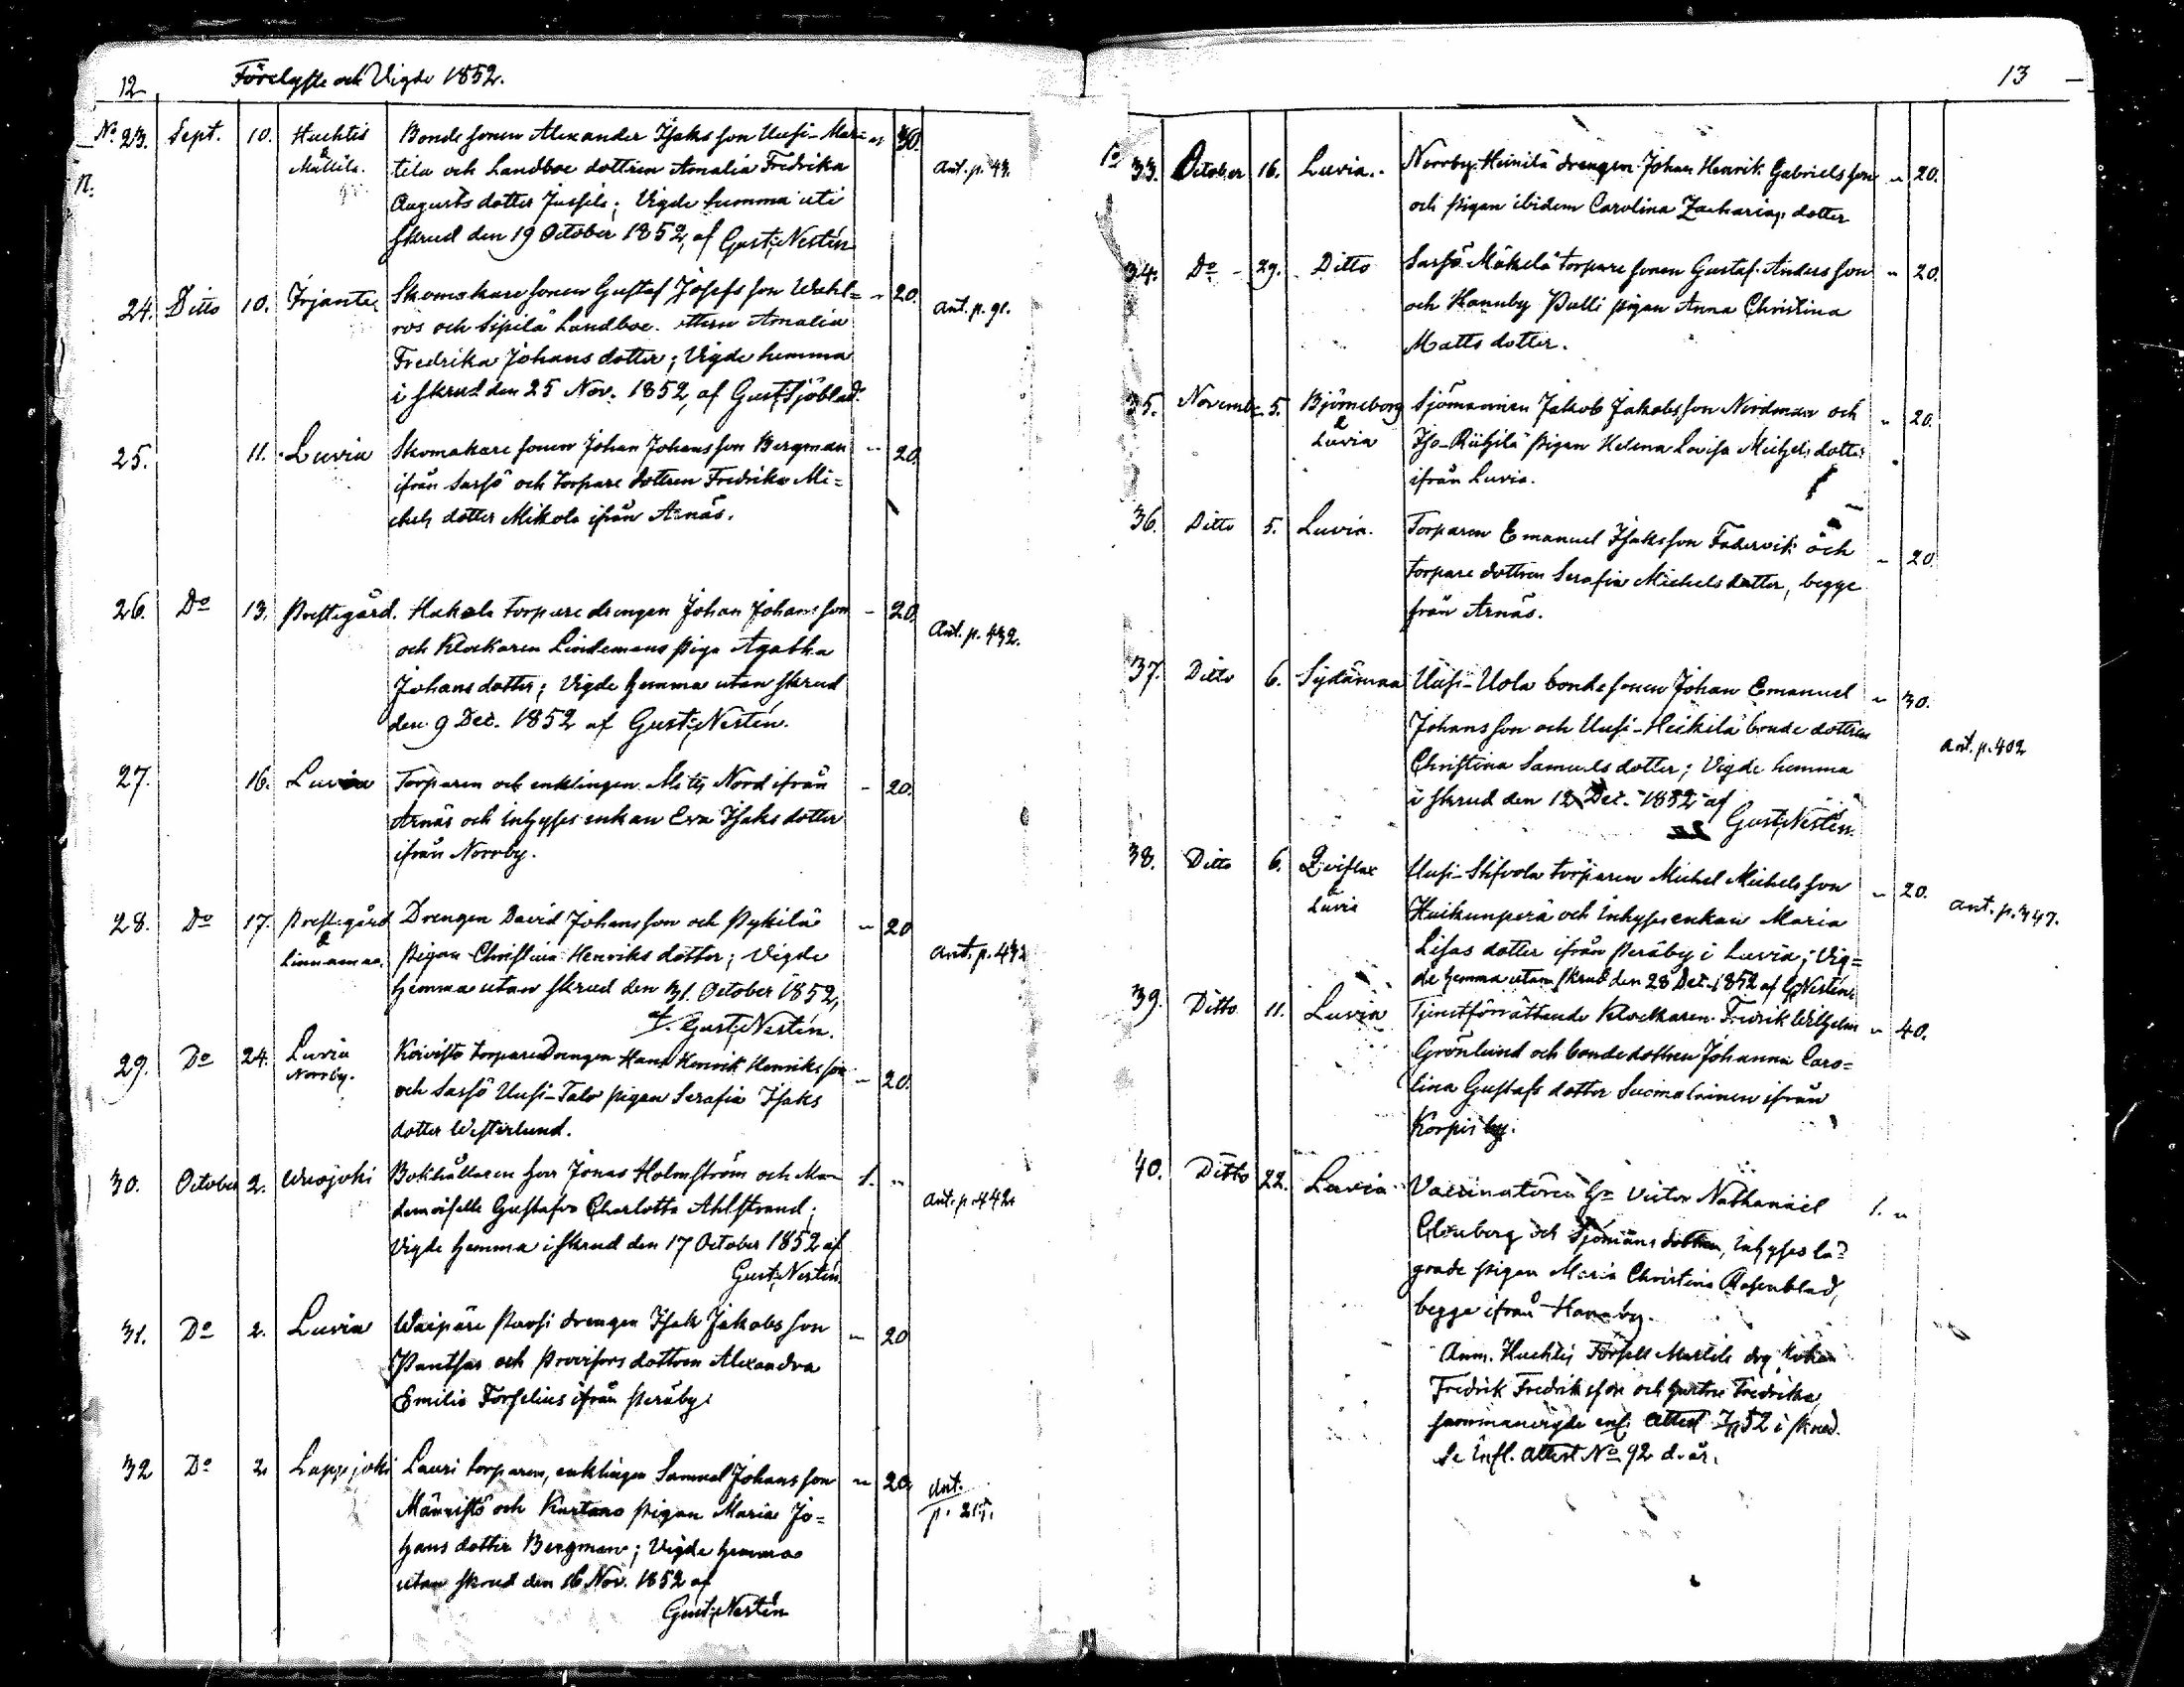 12 Förelyste och Vigde 1852.
No 23. Sept. 10. Huchtis & Mällilä. Bondesonen Alexander Isaksson Uusi-Mar- " 30.
tila och Landboe dottren Amalia Fredrika Ant. p. 43.
Augusts dotter Jussila; Vigde hemma uti
skrud den 19 October 1852, af Gust: Nestén
24. Ditto 10. Irjante Skomakaresonen Gustaf Josefsson Wahl= " 20.
ros och Sipilä Landboe Amalia Ant. p. 91.
Fredrika Johansdotter; Vigde hemma
i skrud den 25 Nov. 1852, af Gust: Sjöblad.
25. 11. Luvia Skomakaresonen Johan Johansson Bergman " 20.
ifrån Sassö och torparedottren Fredrika Mi=
chels dotter Mikola ifrån Arnäs.
26. Do 13. Prestegård. Hakala torparedrengen Johan Johansson " 20.
och Klockaren Lindemans piga Agatha Ant. p. 432.
Johansdotter; Vigde hemma utan skrud
den 9 Dec. 1852 af Gust: Nestén.
27. 16. Luvia Torparen och enklingen Matts Nord ifrån " 20.
Arnäs och Inhyses enkan Eva Isaksdotter
ifrån Norrby.
28. Do 17. Prestegård & Linnamaa. Drengen David Johansson och Pykilä " 20
pigan Christina Henriksdotter; Vigde Ant. p. 432
hemma utan skrud den 31. October 1852,
af Gust: Nestén.
29. Do 24. Luvia Norrby. Koivisto torpare Drengen Hans Henrik Henriksson " 20.
och Sassö Uusi-Talo pigan Serafia Isaks
dotter Westerlund.
30. October 2. Wuojoki Bokhållaren Herr Jonas Holmström och Ma- 1. "
demoiselle Gustafva Charlotta Ahlstrand; Ant. p. 442.
Vigde hemma i skrud den 17 October 1852 af
Gust: Nestén
31. Do 2. Luvia Waipäre Puosi drengen Isak Jakobsson " 20
Panthar och Provisors dottren Alexandra
Emilia Forselius ifrån Peräby.
32 Do 2 Lappijoki Lauri torparen, enklingen Samuel Johansson " 20.
Männistö och Kartano pigan Maria Jo= Ant. p. 215.
hans dotter Bergman; Vigde hemma
utan skrud den 16 Nov. 1852 af
Gust: Nestén
13
33. October 16. Luvia. Norrby Heinilä drengen Johan Henrik Gabrielsson " 20.
och pigan ibidem Carolina Zachariæ dotter
34. Do 29. Ditto Sassö Mäkelä torparesonen Gustaf Andersson " 20.
och Hannby Pulli pigan Anna Christina
Matts dotter.
35. November 5. Björneborg & Luvia Sjömannen Jakob Jakobsson Nordman och " 20.
Iso-Riihilä pigan Helena Lovisa Michels dotter
ifrån Luvia.
36. Ditto 5. Luvia. Torparen Emanuel Isaksson Fadervik och " 20.
torpare dottren Serafia Michelsdotter, begge
från Arnäs.
37. Ditto 6. Sydänmaa Uusi-Uola bondesonen Johan Emanuel " 30.
Johansson och Uusi-Heikilä bonde dottren Ant. p. 402
Christina Samuelsdotter; Vigde hemma
i skrud den 12 Dec. 1852 af
Gust: Nestén.
38. Ditto 6. Luvia Uusi- torparen Michel Michelsson " 20.
Huikunperä och Inhyses enkan Maria Ant. p. 347.
Lisas dotter ifrån Peräby i Luvia; Vig=
de hemma utan skrud den 28 Dec. 1852 af G. Nestén.
39. Ditto 11. Luvia Tjenstförrättande Klockaren Fredrik Wilhelm " 40.
Grönlund och bondedottren Johanna Caro=
lina Gustafs dotter Suomalainen ifrån
Korpis by.
40. Ditto 22. Luvia Vaccinatören Hr Victor Nathanaël 1. "
och Sjömans dottren, Inhyses
pigan Maria Christina Rosenblad,
begge ifrån Hannby.
Anm. Huchtis Martila drg Johan
Fredrik Fredriksson och Fredrika
sammanvigde enl. attest 52 i skrud.
Se Infl. Attest No 92 d. år.